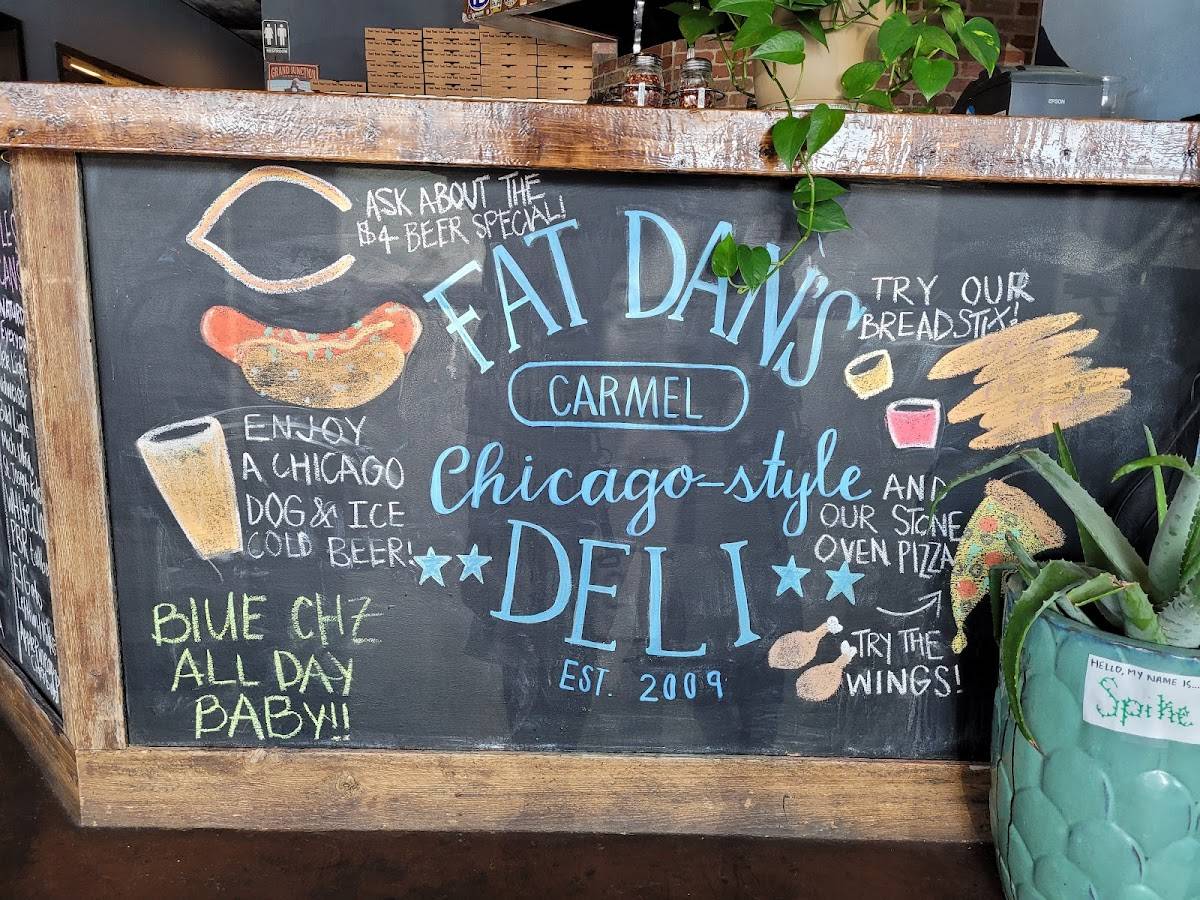 RESTROOM
GRAND JUNCTION
EPSON
ASK ABOUT THE
$4 BEER SPECIAL!
FAT DAN'S
CARMEL
Chicago-style
DELI
EST. 2009
ENJOY
A CHICAGO
DOG & ICE
COLD BEER!
BLUE CHZ
ALL DAY
BABY!!
TRY OUR
BREADSTIX!
AND
OUR STONE
OVEN PIZZA
TRY THE
WINGS!
HELLO, MY NAME IS...
Spike